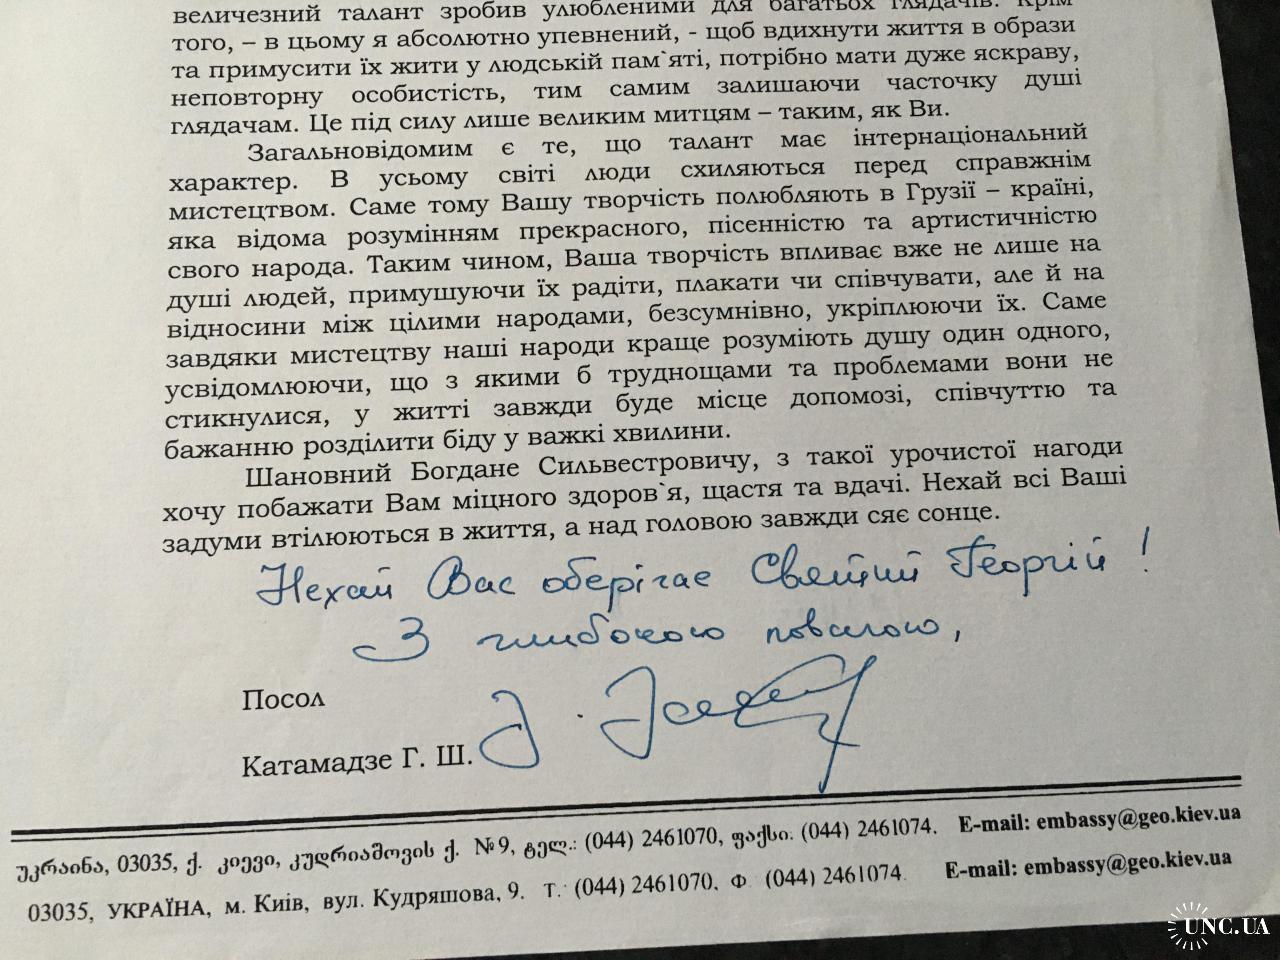 величезний талант зробив улюбленими для багатьох глядачів. Крім
того, – в цьому я абсолютно упевнений, - щоб вдихнути життя в образи
та примусити їх жити у людській пам`яті, потрібно мати дуже яскраву,
неповторну особистість, тим самим залишаючи часточку душі
глядачам. Це під силу лише великим митцям – таким, як Ви.
Загальновідомим є те, що талант має інтернаціональний
характер. В усьому світі люди схиляються перед справжнім
мистецтвом. Саме тому Вашу творчість полюбляють в Грузії – країні,
яка відома розумінням прекрасного, пісенністю та артистичністю
свого народа. Таким чином, Ваша творчість впливає вже не лише на
душі людей, примушуючи їх радіти, плакати чи співчувати, але й на
відносини між цілими народами, безсумнівно, укріплюючи їх. Саме
завдяки мистецтву наші народи краще розуміють душу один одного,
усвідомлюючи, що з якими б труднощами та проблемами вони не
стикнулися, у житті завжди буде місце допомозі, співчуттю та
бажанню розділити біду у важкі хвилини.
Шановний Богдане Сильвестровичу, з такої урочистої нагоди
хочу побажати Вам міцного здоров`я, щастя та вдачі. Нехай всі Ваші
задуми втілюються в життя, а над головою завжди сяє сонце.
Нехай Вас оберігає Святий Георгій!
З глибокою повагою,
Посол
Катамадзе Г. Ш.
უკრაინა, 03035, ქ. კიევი, კუდრიაშოვის ქ. №9, ტელ.: (044) 2461070, ფაქსი. (044) 2461074. E-mail: embassy@geo.kiev.ua
03035, УКРАЇНА, м. Київ, вул. Кудряшова, 9. Т. (044) 2461070. Ф (044) 2461074. E-mail: embassy@geo.kiev.ua
UNC.UA